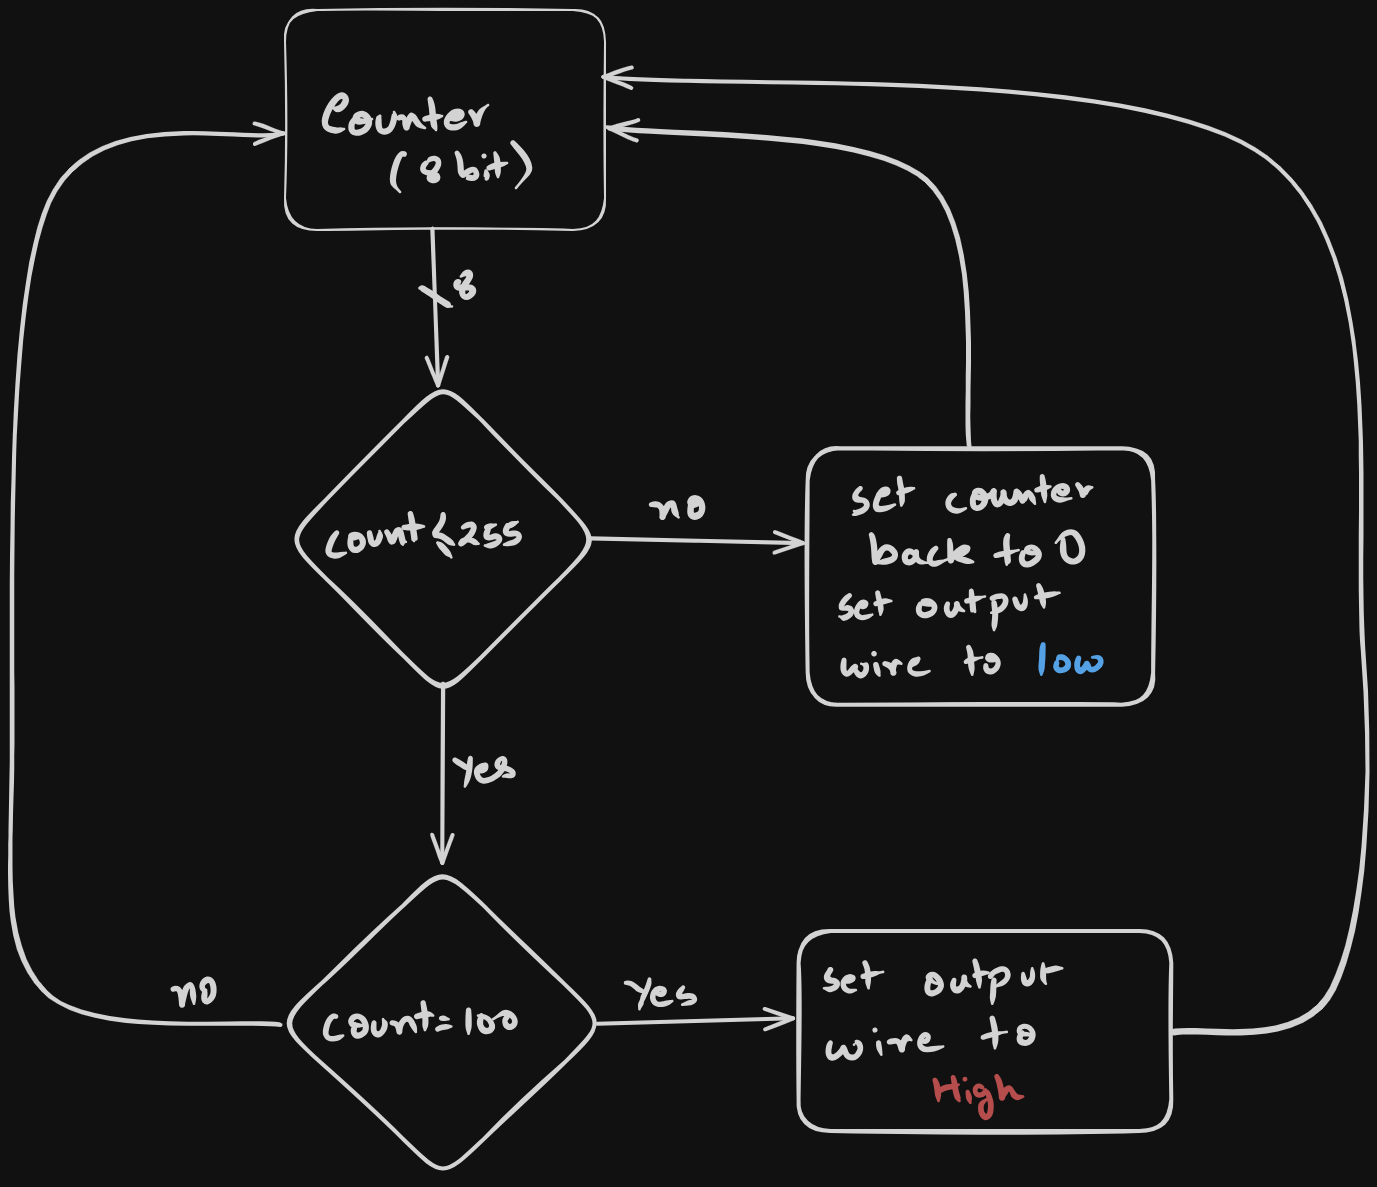 Counter
(8 bit)
8
count < 255
no
set counter
back to 0
set output
wire to low
yes
no
count = 100
yes
set output
wire to
High